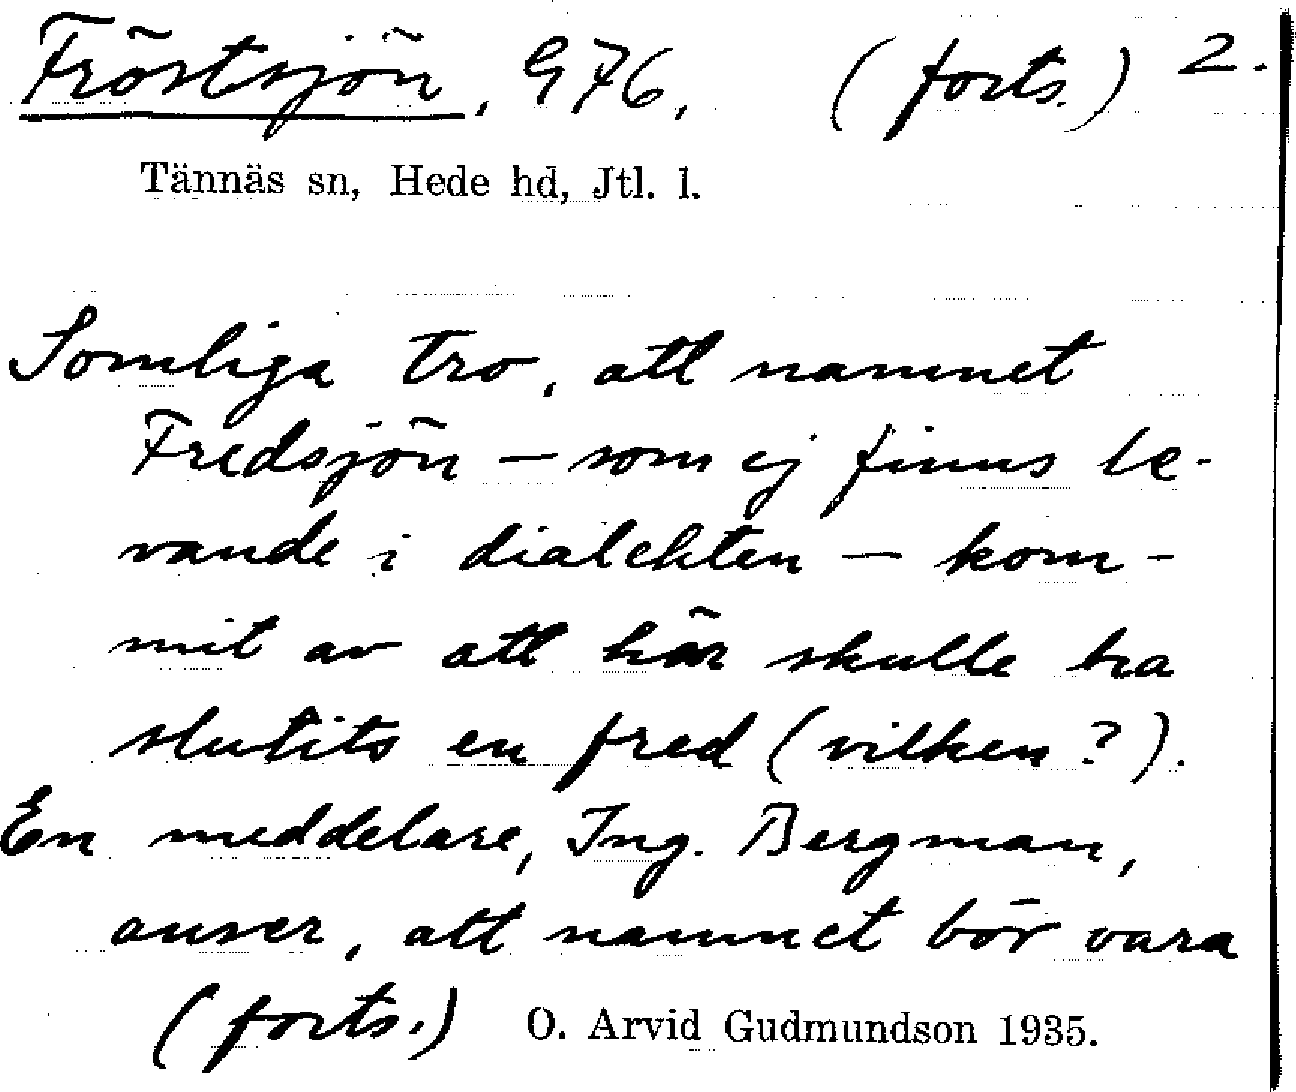 Fröstsjön, 976, (forts.) 2.
Tännäs sn, Hede hd, Jtl. l.
Somliga tro, att namnet
Fredsjön – som ej finns le-
vande i dialekten – kom-
mit av att här skulle ha
slutits en fred (vilken?).
En meddelare, Ing. Bergman,
anser, att namnet bör vara
(forts.) O. Arvid Gudmundson 1935.